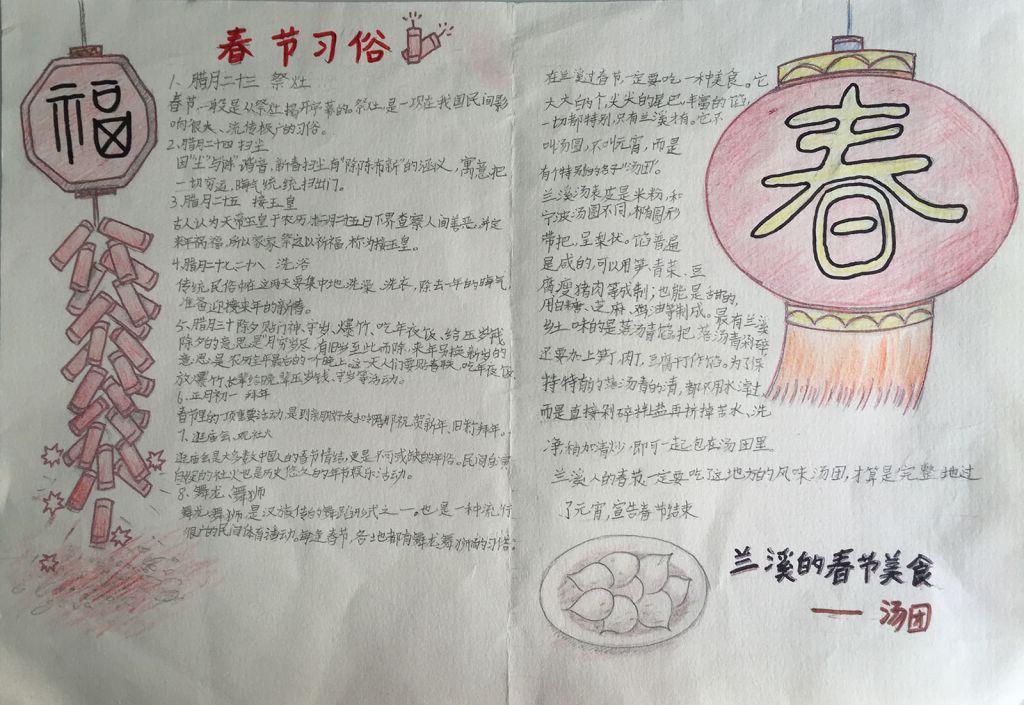 福
春节习俗
1、腊月二十三 祭灶
春节一般是从祭灶揭开序幕的。祭灶是一项在我国民间影
响很大、流传极广的习俗。
2、腊月二十四 扫尘
因"尘"与"陈"谐音,新春扫尘有"除陈布新"的涵义,寓意把
一切穷运,晦气统统扫出门。
3、腊月二十五 接玉皇
古人认为天帝玉皇于农历腊月廿五日下界查察人间善恶,并定
来年祸福,所以家家祭之以祈福,称为接玉皇。
4、腊月二十七二十八 洗浴
传统民俗中在这两天要集中地洗澡、洗衣,除去一年的晦气,
准备迎接来年的新春。
5、腊月三十除夕贴门神、守岁、爆竹、吃年夜饭、给压岁钱
除夕的意思是月穷岁尽,有旧岁至此而除,来年另换新岁的
意思,是农历全年最后的一个晚上。这一天人们要贴春联,吃年夜饭,
放爆竹,长辈给晚辈压岁钱、守岁等活动。
6、正月初一 拜年
春节里的一项重要活动,是到亲朋好友和邻居那祝贺新年,旧称拜年。
7、逛庙会、玩社火
逛庙会是大多数中国人的春节情结,更是不可或缺的年俗。民间自演
自娱的社火也是历史悠久的年节娱乐活动。
8、舞龙、舞狮
舞龙、舞狮是汉族传的舞蹈形式之一。也是一种流行
很广的民间体育活动。每逢春节,各地都有舞龙、舞狮的习俗。
春
在兰溪过春节一定要吃一种美食。它
大大的个,尖尖的尾巴,丰富的馅,
一切都特别,只有兰溪才有。它不
叫汤圆,不叫元宵,而是
有个特别的名字"汤团"。
兰溪汤表皮是米粉,和
宁波汤圆不同,椭圆形
带把,呈梨状。馅普遍
是咸的,可以用笋、青菜、豆
腐、瘦猪肉等咸制;也能是甜的,
用白糖、芝麻、鸡油等制成。最有兰溪
乡土味的是落汤青馅,把落汤青剁碎
还要加上笋丁,肉丁,豆腐干丁作馅。为了保
持特有的落汤青的清,都不用水漂过
而是直接剁碎拌盐再挤掉苦水、洗
净稍加清炒,即可一起包在汤团里。
兰溪人的春节一定要吃了这地方的风味汤团,才算是完整地过
了元宵,宣告春节结束
兰溪的春节美食
——汤团